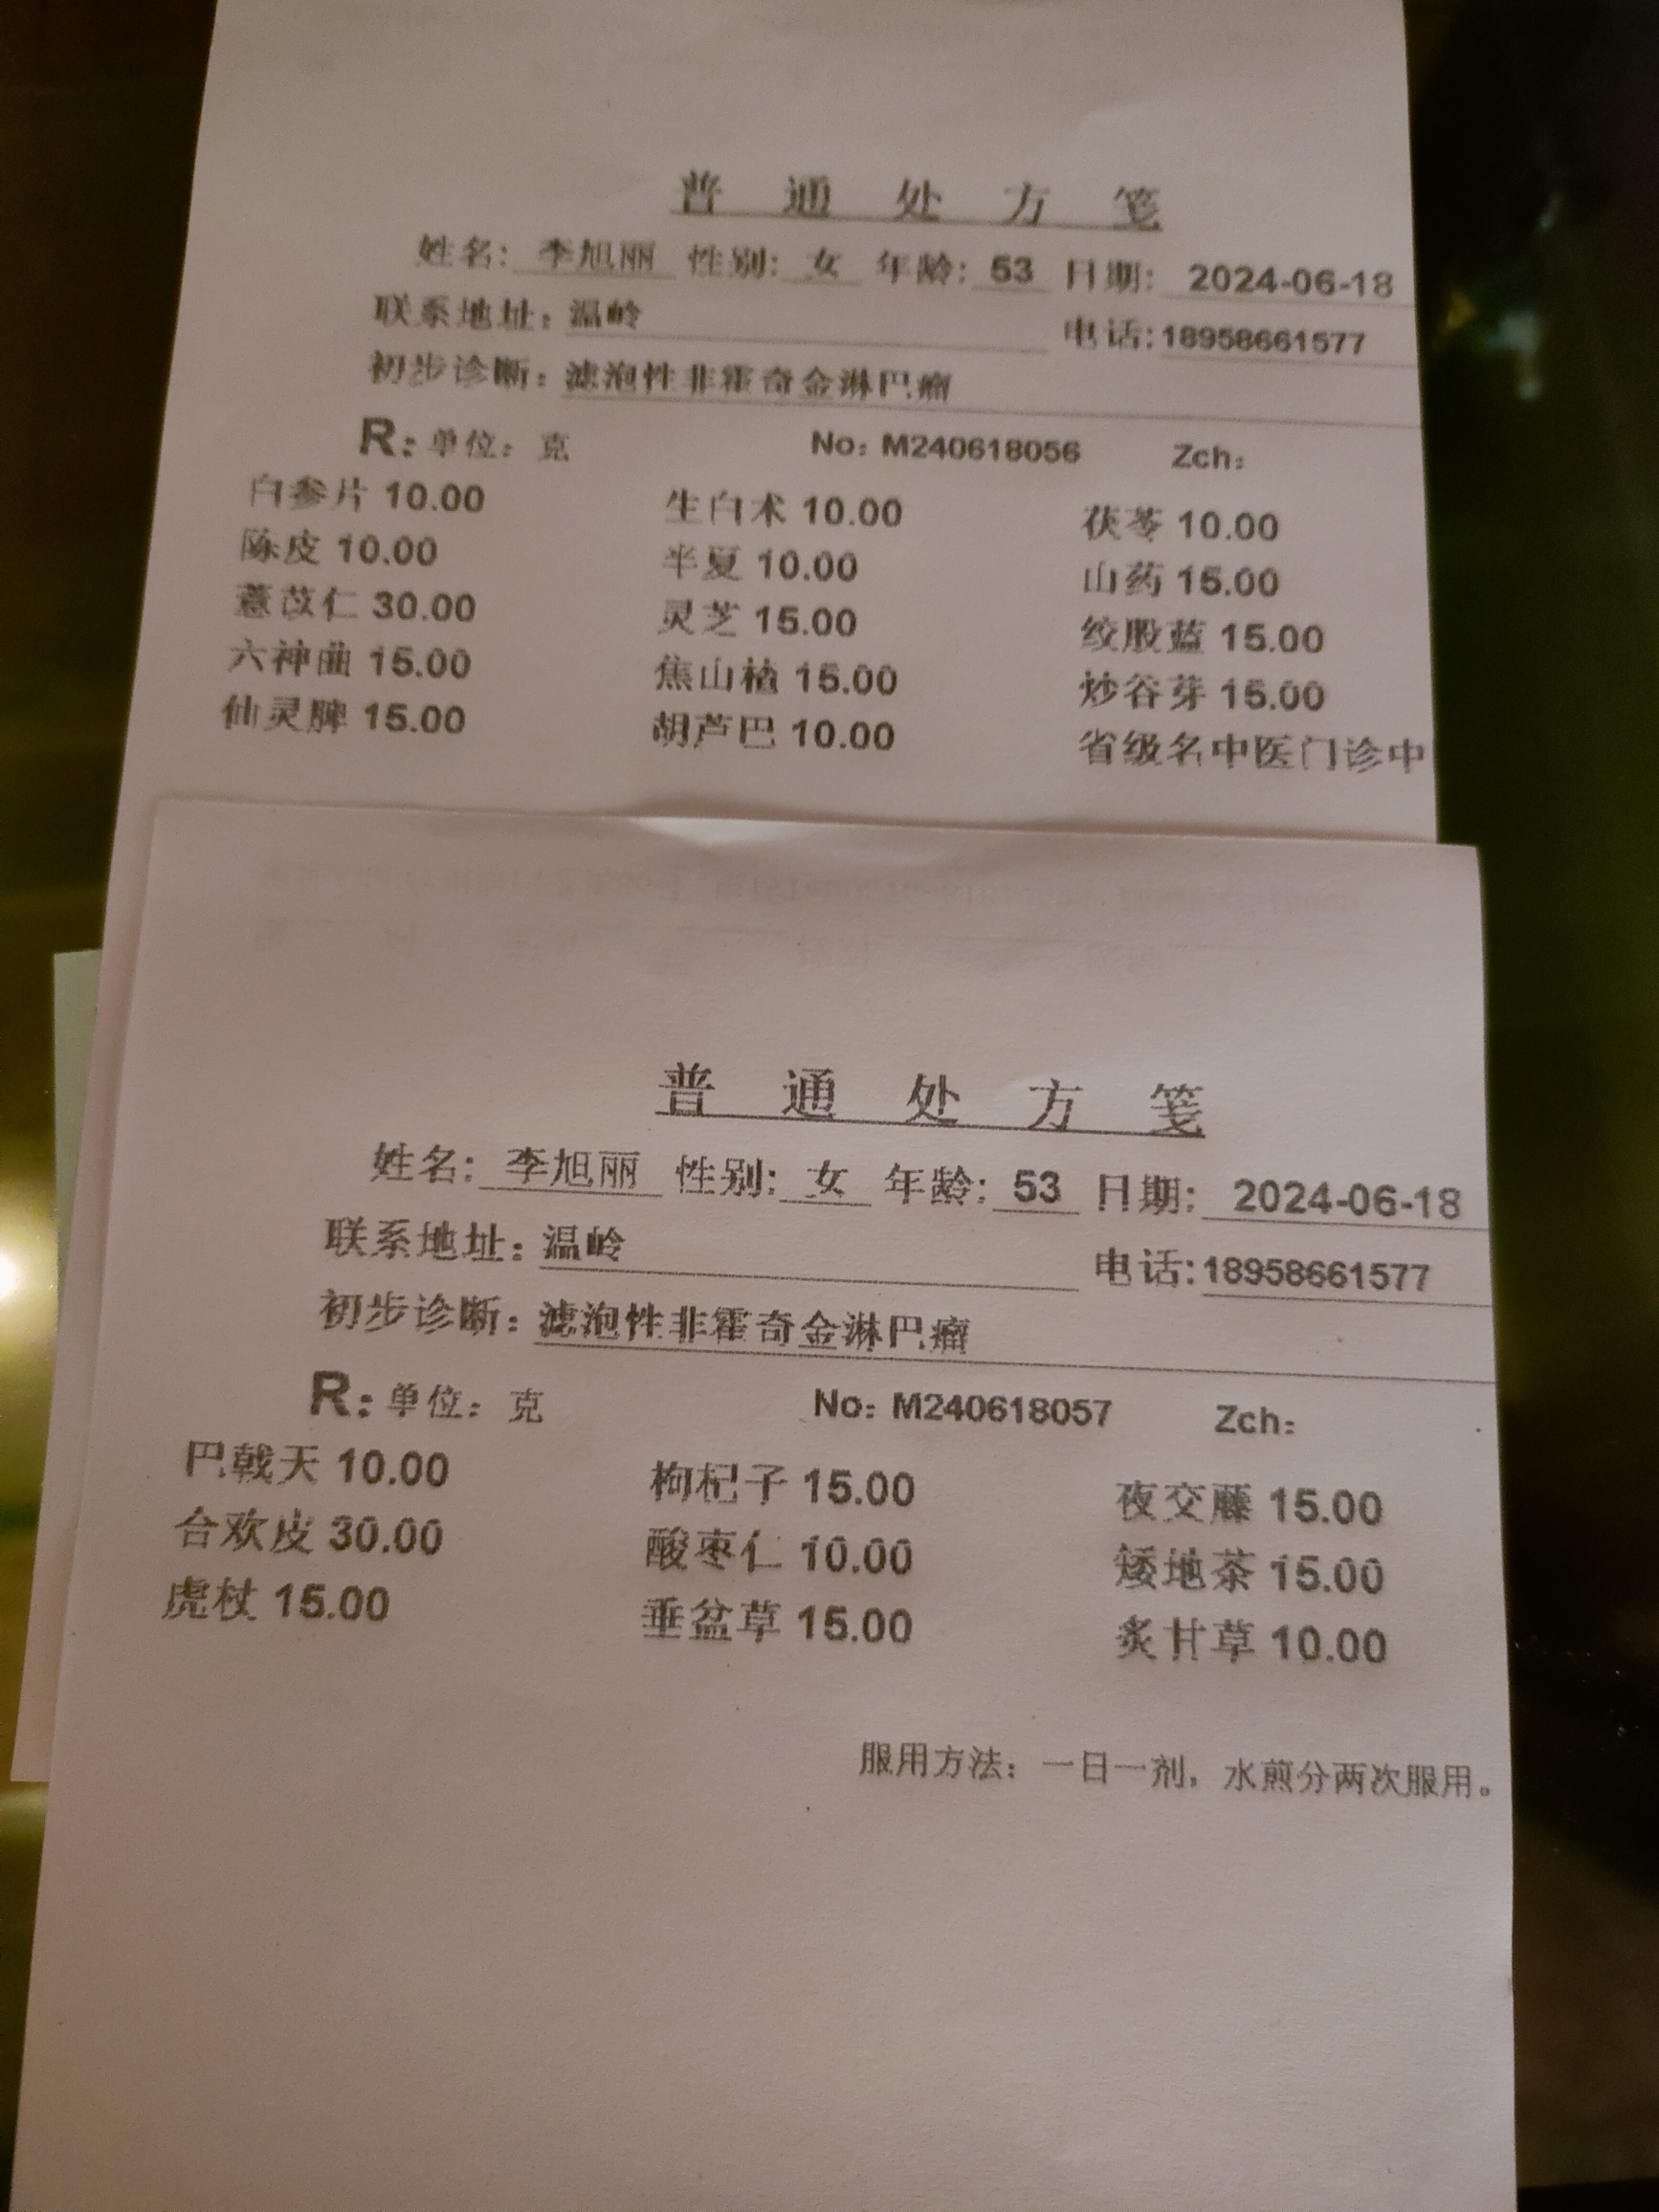 普通处方笺
姓名: 李旭丽 性别: 女 年龄: 53 日期: 2024-06-18
联系地址: 温岭 电话: 18958661577
初步诊断: 滤泡性非霍奇金淋巴瘤
R: 单位: 克 No: M240618056 Zch:
白参片 10.00 生白术 10.00 茯苓 10.00
陈皮 10.00 半夏 10.00 山药 15.00
薏苡仁 30.00 灵芝 15.00 绞股蓝 15.00
六神曲 15.00 焦山楂 15.00 炒谷芽 15.00
仙灵脾 15.00 胡芦巴 10.00 省级名中医门诊中
普通处方笺
姓名: 李旭丽 性别: 女 年龄: 53 日期: 2024-06-18
联系地址: 温岭 电话: 18958661577
初步诊断: 滤泡性非霍奇金淋巴瘤
R: 单位: 克 No: M240618057 Zch:
巴戟天 10.00 枸杞子 15.00 夜交藤 15.00
合欢皮 30.00 酸枣仁 10.00 矮地茶 15.00
虎杖 15.00 垂盆草 15.00 炙甘草 10.00
服用方法: 一日一剂, 水煎分两次服用。